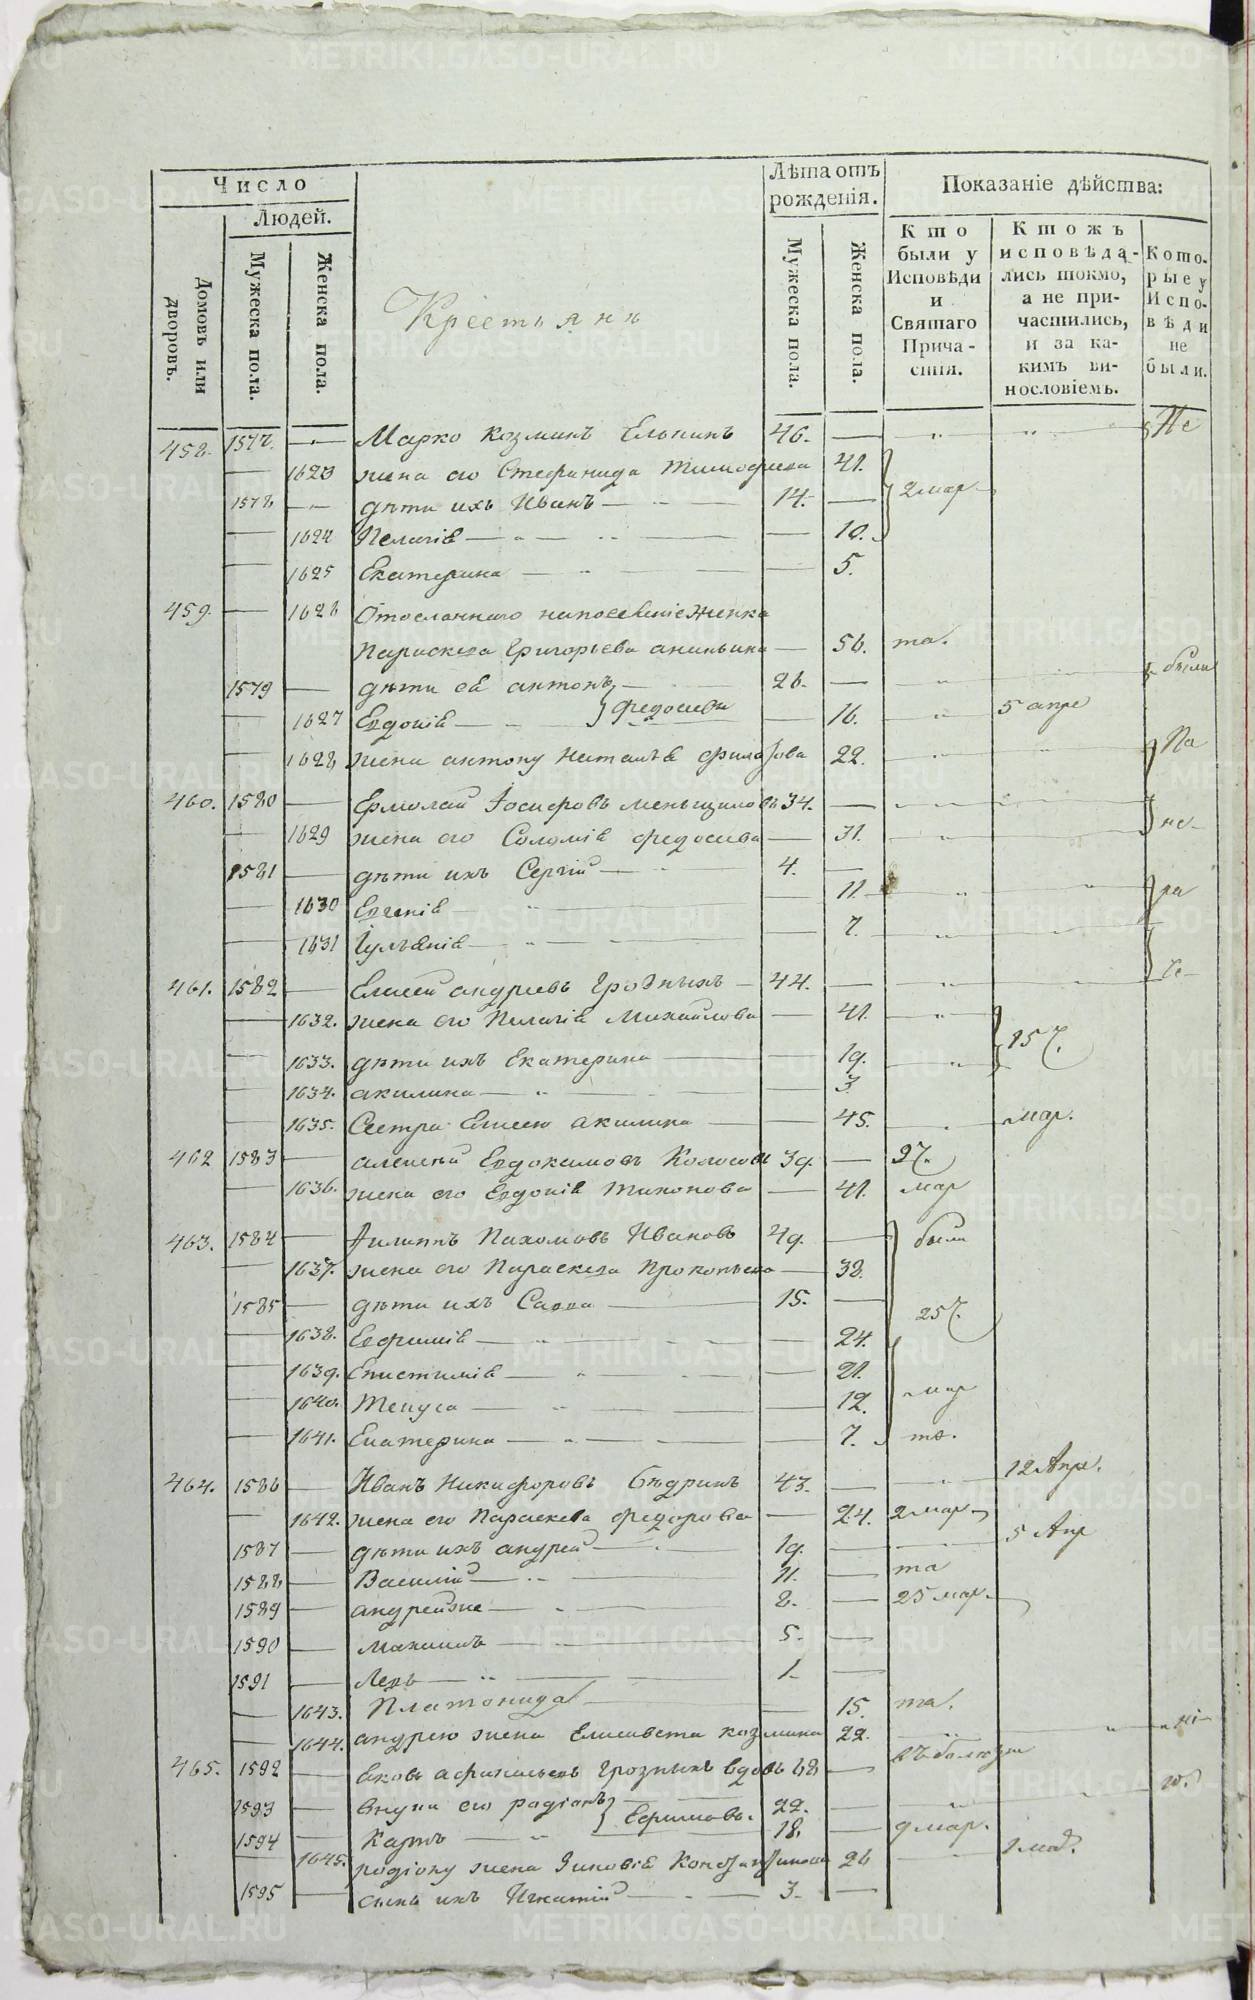 Число
Людей.
Домовъ или дворовъ.
Мужеска пола.
Женска пола.
Крестьяне
Лѣта отъ рожденія.
Мужеска пола.
Женска пола.
Показаніе дѣйства:
Кто были у Исповѣди и Святаго Причастія.
Ктожъ исповѣдались токмо, а не причастились, и за какимъ винословіемъ.
Которые у Исповѣди не были.
458. 1577. Марко Козминъ Елькинъ 46. Не
1623 жена его Стефанида Тимофеева 41.
1578 дѣти ихъ Иванъ 14. 2 мар.
1624 Пелагіѣ 10.
1625 Екатерина 5.
459. 1626 Отосланнаго на поселеніе женка
Параскева Григорьева ананьина 56. та.
1579 дѣти еѣ антонъ 26. были
1627 Евдокіѣ } Федосеевы 16. 5 апре
1628 жена антону Наталья 22. Па
460. 1580 Ермолай Іосифовъ меньщиковъ 34.
1629 жена его Соломіѣ федосеева 31. не
1581 дѣти ихъ Сергій 4.
1630 Евгеніѣ 11. ра
1631 Іульѣніѣ 7.
461. 1582 Елисей андреевъ Грозныхъ 44.
1632. жена его Пелагіѣ Михайлова 41.
1633. дѣти ихъ Екатерина 19. 15 ч.
1634. акилина 3.
1635. Сестра Елисею акилина 45. мар.
462 1583 алексей Евдокимовъ Колосовъ 39. 27.
1636. жена его Евдокіѣ Тихонова 41. мар
463. 1584 Филиппъ Пахомовъ Ивановъ 49. были
1637. жена его Параскева Прокопьева 38.
1585 дѣти ихъ Савва 15. 25 ч.
1638. Евфиміѣ 24.
1639. Епистиміѣ 21.
1640. 12. мар
1641. Екатерина 7. та.
464. 1586 Иванъ Никифоровъ Бѣдринъ 43. 12 Апр.
1642. жена его Параскева федорова 24. 2 мар.
1587 дѣти ихъ андрей 19. 5 Апр
1588 Василій 11. та
1589 андрейже 8. 25 мар.
1590 Максимъ 5.
1591 Левъ 1.
1643. Платонида 15. та.
1644. андрею жена Елисавета козмина 22.
465. 1592 Грозныхъ вдовъ 68 въ болезни
1593 внуки его родіонъ } Ефимовы. 22.
1594 Карпъ 18. 9 мар.
1645. родіону жена Зиновіѣ Константинова 26 1 мар.
1595 сынъ ихъ Игнатій 3.
METRIKI.GASO-URAL.RU